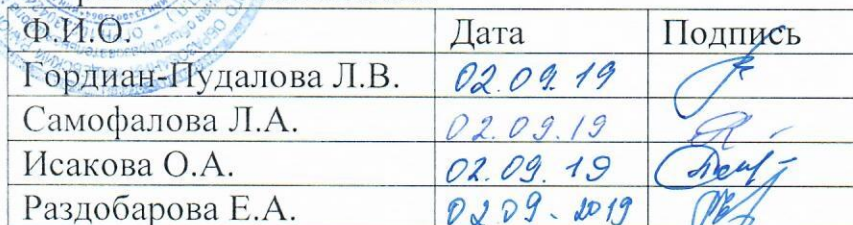 Ф.И.О. Дата Подпись
Гордиан-Пудалова Л.В. 02.09.19
Самофалова Л.А. 02.09.19
Исакова О.А. 02.09.19
Раздобарова Е.А. 02 09 - 2019